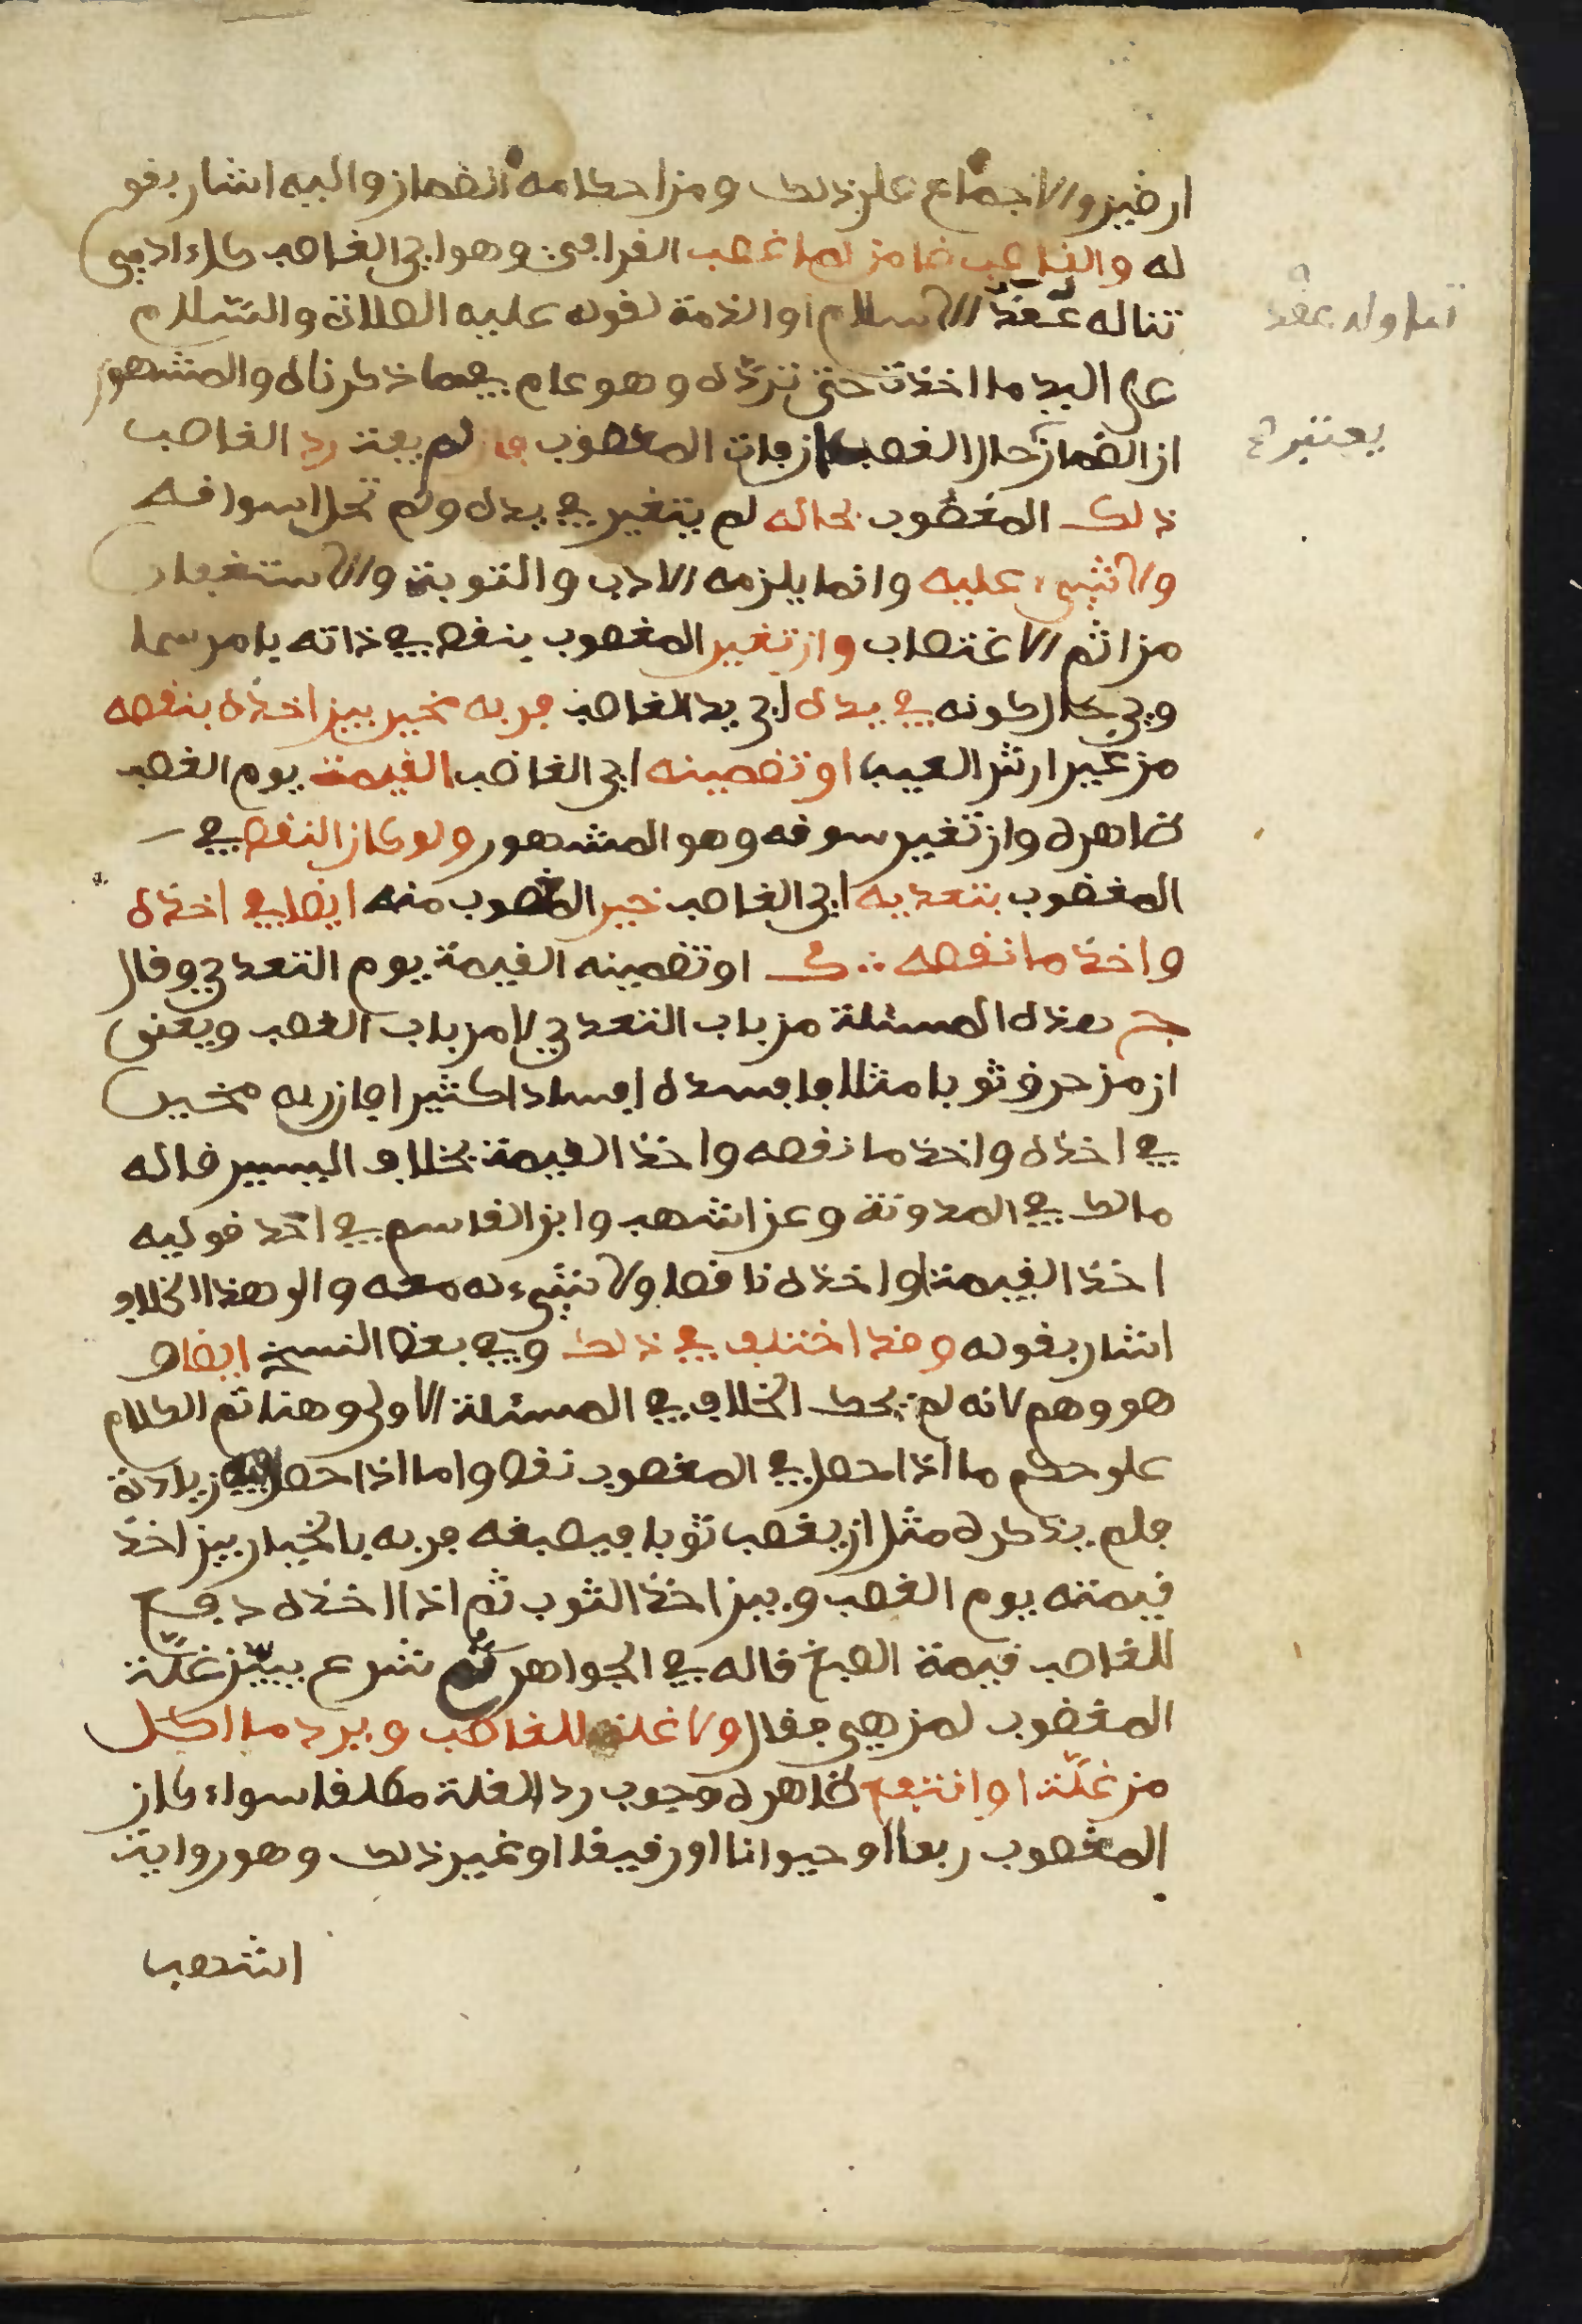 ارضين والاجماع على ذلك ومن احكامه الضمان واليه اشار بقو
له والغاصب ضامن لما غصب القرافي وهو اي الغاصب كل ادمي
تناله عقد الاسلام او الذمة لقوله عليه الصلاة والسلام
على اليد ما اخذت حتى ترده وهو عام فيما ذكرناه والمشهور
ان الضمان حال الغصب ان فات المغصوب فان لم يفت رد الغاصب
ذلك المغصوب بحاله لم يتغير في يده ولم تحل اسواقه
ولا شيء عليه وانما يلزمه الادب والتوبة والاستغفار
من اثم الاغتصاب وان تغير المغصوب بنقص في ذاته بامر سما
وي حال كونه في يده اي يد الغاصب فربه مخير بين اخذه بنقصه
من غير ارش العيب او تضمينه اي الغاصب القيمة يوم الغصب
ظاهره وان تغير سوقه وهو المشهور ولو كان النقص في
المغصوب بتعديه اي الغاصب خير المغصوب منه ايضا في اخذه
واخذ ما نقصه او تضمينه القيمة يوم التعدي وقال
ج هذه المسئلة من باب التعدي لا من باب الغصب ويعني
ان من حرق ثوبا مثلا فافسده افسادا كثيرا فان ربه مخير
في اخذه واخذ ما نقصه واخذ القيمة بخلاف اليسير قاله
مالك في المدونة وعن اشهب وابن القاسم في احد قوليه
اخذ القيمة او اخذه ناقصا ولا شيء له معه والى هذا الخلاف
اشار بقوله وقد اختلف في ذلك وفي بعض النسخ ايضا و
هو وهم لانه لم يحك الخلاف في المسئلة الاولى وهنا تم الكلام
على حكم ما اذا حصل في المغصوب نقص واما اذا حصل فيه زيادة
فلم يذكره مثل ان يغصب ثوبا فيصبغه فربه بالخيار بين اخذ
قيمته يوم الغصب وبين اخذ الثوب ثم اذا اخذه دفع
للغاصب قيمة الصبغ قاله في الجواهر ثم شرع يبين غلة
المغصوب لمن هي فقال ولا غلة للغاصب ويرد ما اكل
من غلة او انتفع ظاهره وجوب رد الغلة مطلقا سواء كان
المغصوب ربعا او حيوانا او رقيقا او غير ذلك وهو رواية
اشهب
تناوله عقد
يعتبر